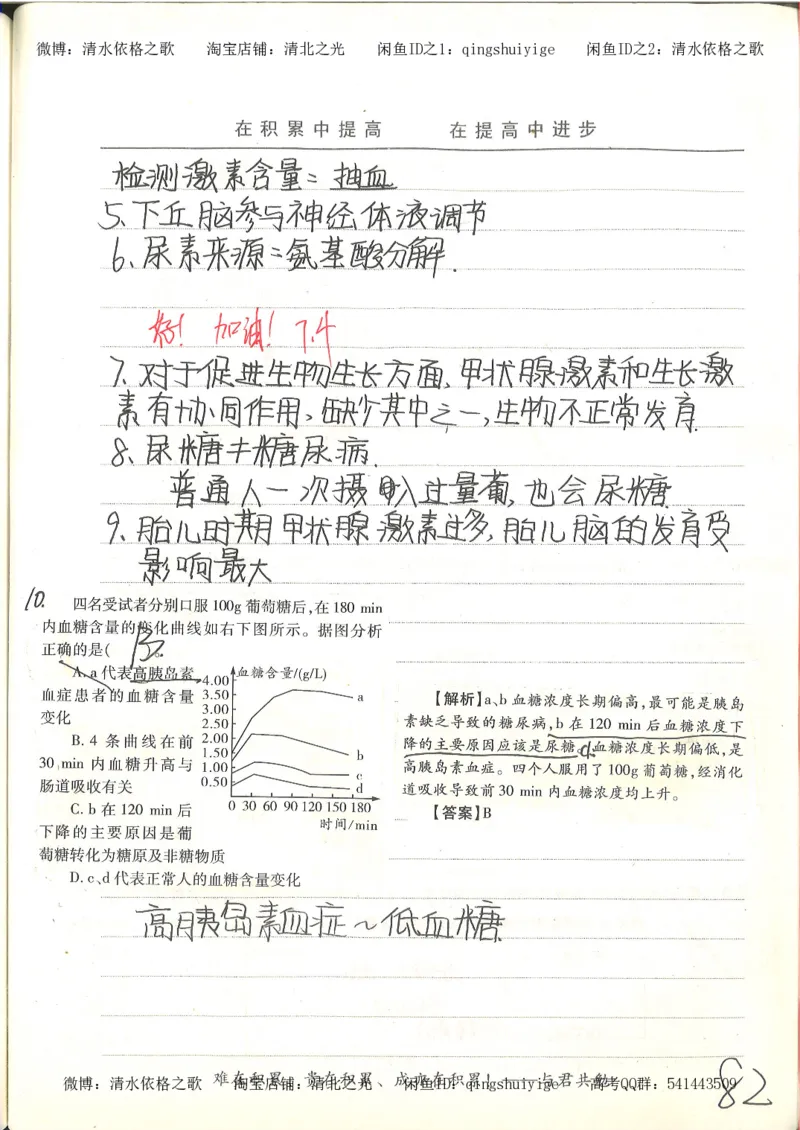 微博：清水依格之歌 淘宝店铺：清北之光 闲鱼ID之1：qingshuiyige 闲鱼ID之2：清水依格之歌
在积累中提高 在提高中进步
检测激素含量：抽血
5、下丘脑参与神经体液调节
6、尿素来源：氨基酸分解.
好！ 加油！ 7.4
7、对于促进生物生长方面,甲状腺激素和生长激
素有协同作用,缺少其中之一,生物不正常发育.
8、尿糖≠糖尿病.
普通人一次摄入过量葡,也会尿糖.
9、胎儿时期甲状腺激素过多,胎儿脑的发育受
影响最大
10.
四名受试者分别口服100g葡萄糖后,在180 min
内血糖含量的变化曲线如右下图所示。据图分析
正确的是( B 。
A. a代表高胰岛素
血症患者的血糖含量
变化
B. 4 条曲线在前
30 min 内血糖升高与
肠道吸收有关
C. b在120 min后
下降的主要原因是葡
萄糖转化为糖原及非糖物质
D. c、d代表正常人的血糖含量变化
血糖含量/(g/L)
4.00
3.50
3.00
2.50
2.00
1.50
1.00
0.50
a
b
c
d
0 30 60 90 120 150 180
时间/min
【解析】a、b血糖浓度长期偏高,最可能是胰岛
素缺乏导致的糖尿病,b在120 min后血糖浓度下
降的主要原因应该是尿糖。d血糖浓度长期偏低,是
高胰岛素血症。四个人服用了100g葡萄糖,经消化
道吸收导致前30 min内血糖浓度均上升。
【答案】B
高胰岛素血症～低血糖
难在积累、贵在积累、成亦在积累！——与君共勉
微博：清水依格之歌 淘宝店铺：清北之光 闲鱼ID：qingshuiyige 高考QQ群：541443509
82